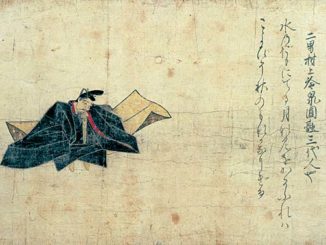 二男村上冷泉圓融三代人也
水のおもにてる月なみをかそふれは
こよひそ秋のもなかなりける